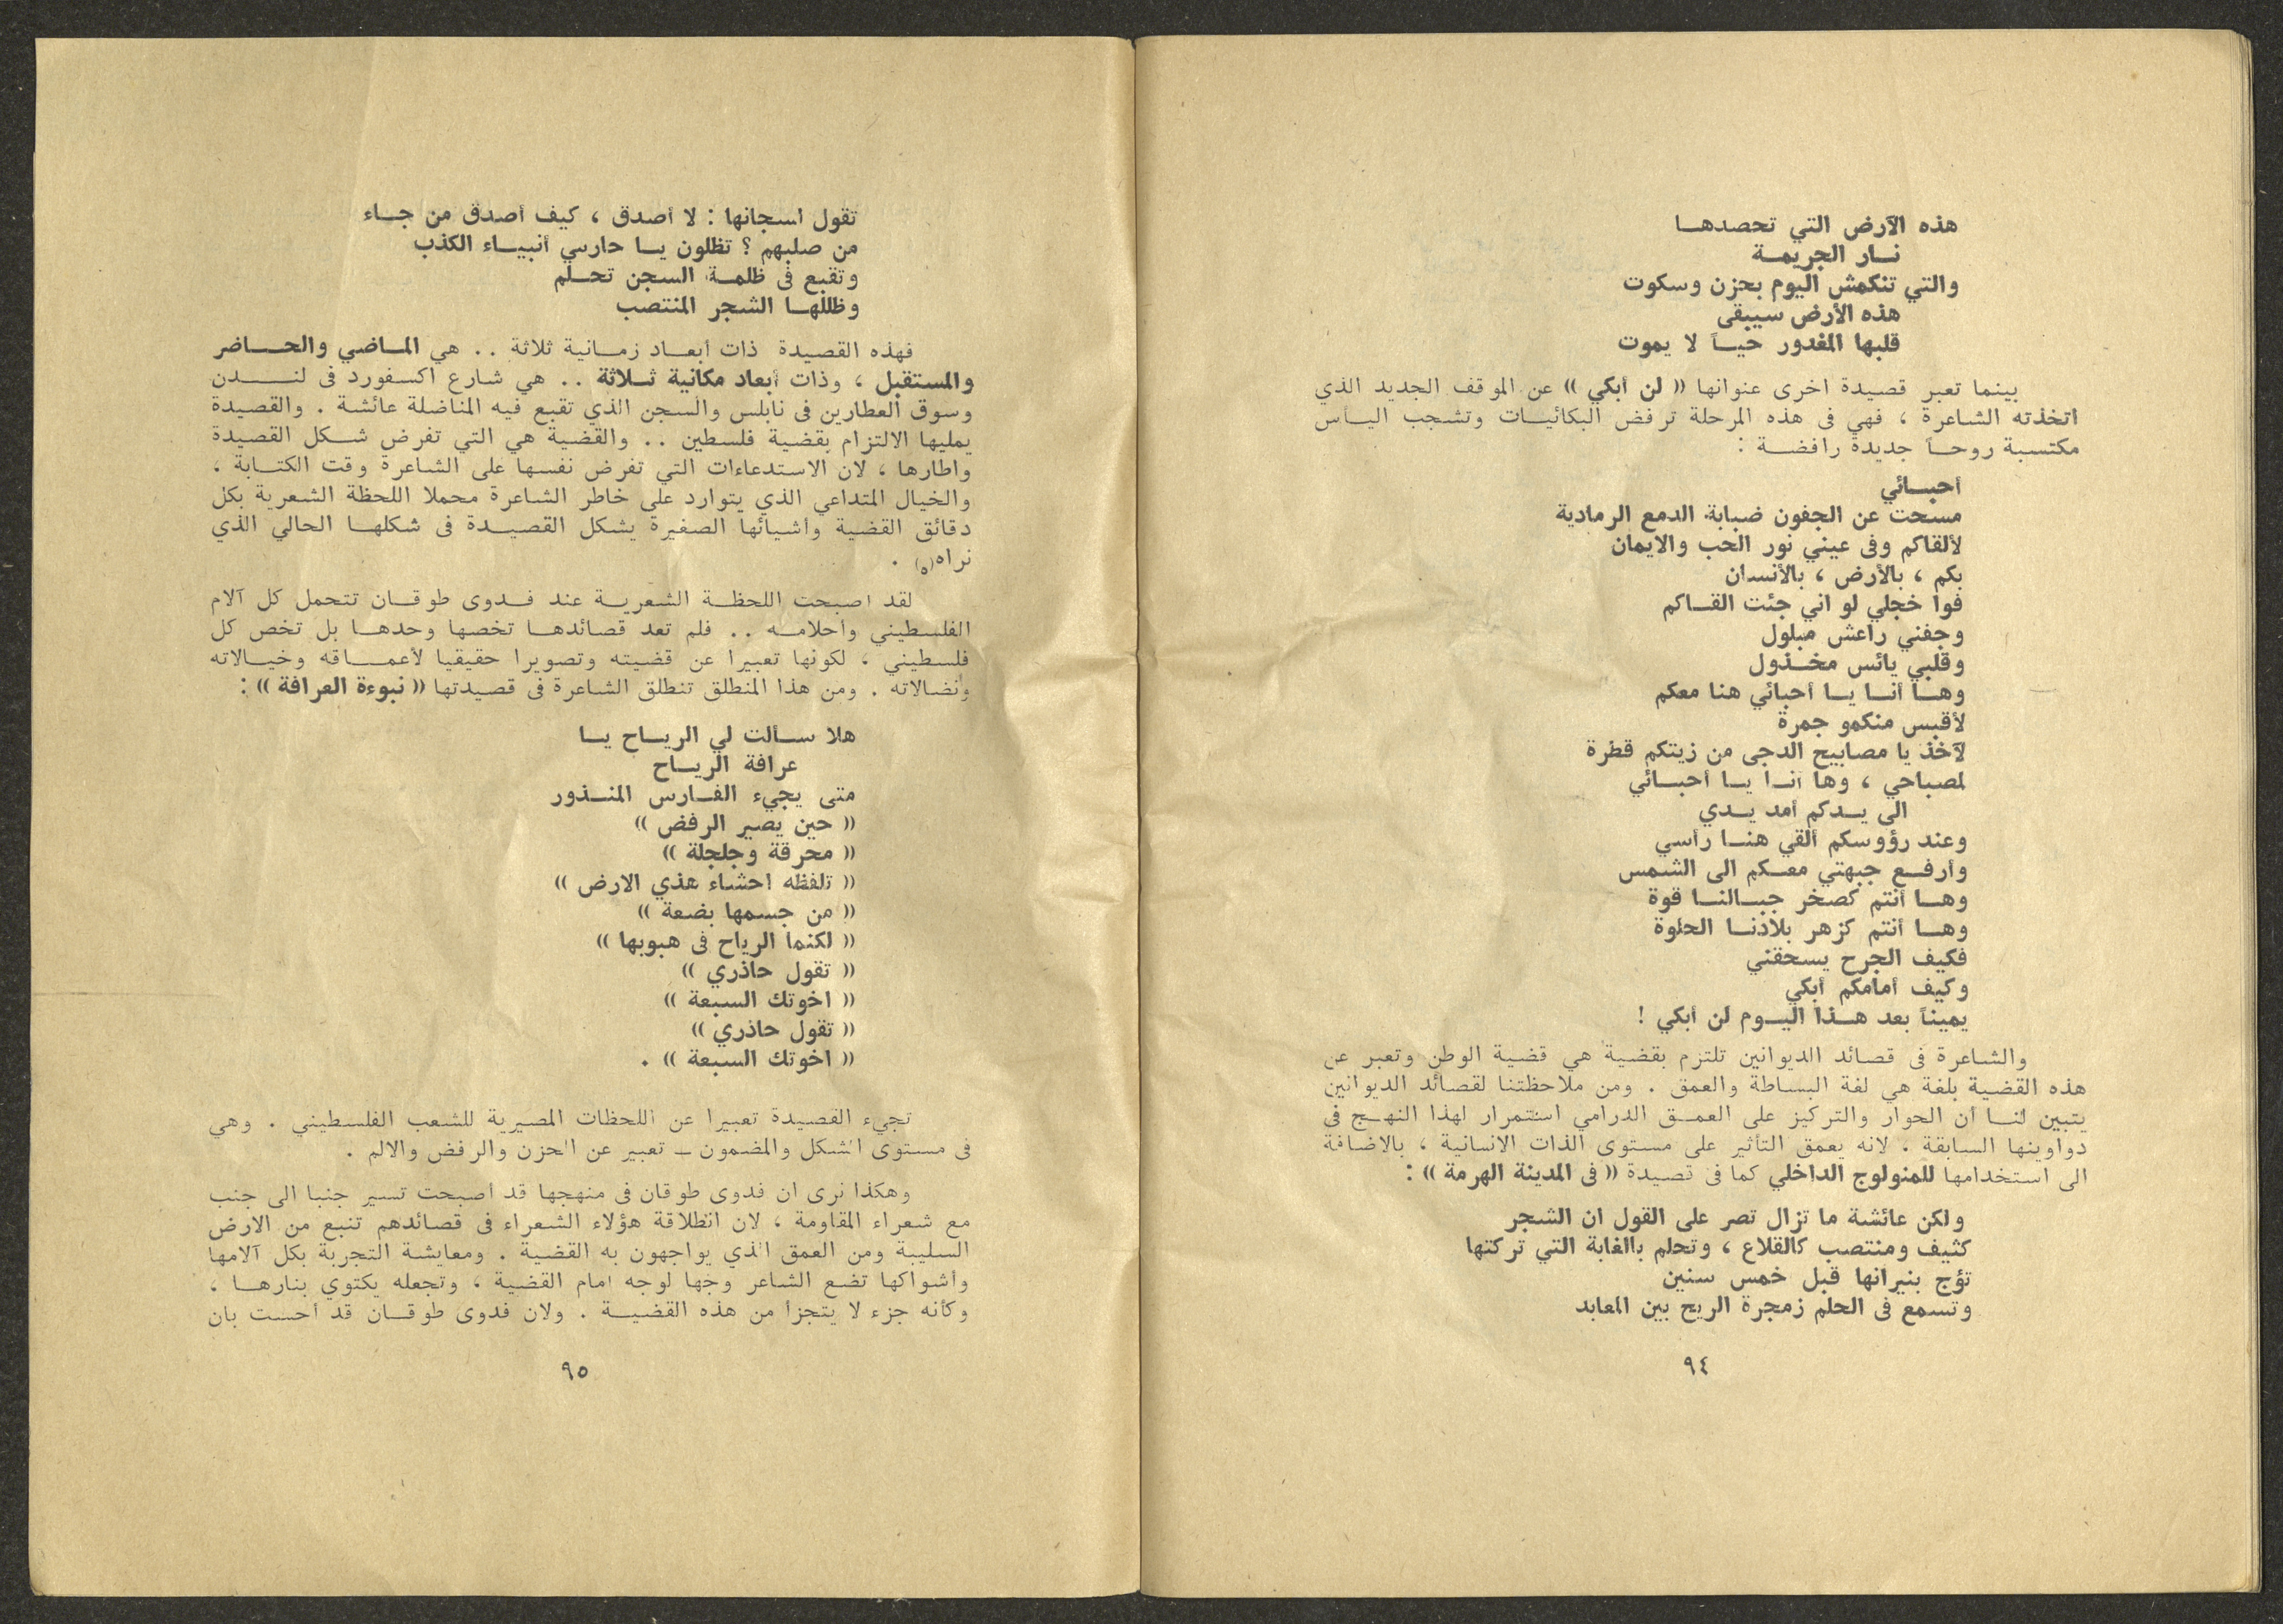 هذه الآرض التي تحصدهــا
نــار الجريمــة
والتي تنكمش اليوم بحزن وسكوت
هذه الأرض سيبقى
قلبها المغدور حيــاً لا يموت
بينما تعبر قصيدة اخرى عنوانها (( لن أبكي )) عن الموقف الجديد الذي
اتخذته الشاعرة ، فهي فى هذه المرحلة ترفض البكائيــات وتشجب اليــأس
مكتسبة روحــاً جديدة رافضــة :
أحبــائي
مسحت عن الجفون ضبابة الدمع الرمادية
لألقاكم وفى عيني نور الحب والايمان
بكم ، بالأرض ، بالأنسان
فوا خجلي لو اني جئت القــاكم
وجفني راعش مبلول
وقلبي يائس مخــذول
وهــا أنــا يــا أحبائي هنا معكم
لأقبس منكمو جمرة
لآخذ يا مصابيح الدجى من زيتكم قطرة
لمصباحي ، وها أنــا يــا أحبــائي
الى يــدكم أمد يــدي
وعند رؤوسكم ألقي هنــا رأسي
وأرفــع جبهتي معــكم الى الشمس
وهــا أنتم كصخر جبــالنــا قوة
وهــا أنتم كزهر بلادنــا الحلوة
فكيف الجرح يسحقني
وكيف أمامكم أبكي
يميناً بعد هــذا اليــوم لن أبكي !
والشاعرة فى قصائد الديوانين تلتزم بقضية هي قضية الوطن وتعبر عن
هذه القضية بلغة هي لغة البساطة والعمق . ومن ملاحظتنا لقصائد الديوانين
يتبين لنــا أن الحوار والتركيز على العمــق الدرامي استمرار لهذا النهــج فى
دواوينها السابقة ، لانه يعمق التأثير على مستوى الذات الانسانية ، بالاضافة
الى استخدامها للمنولوج الداخلي كما فى قصيدة (( فى المدينة الهرمة )) :
ولكن عائشة ما تزال تصر على القول ان الشجر
كثيف ومنتصب كالقلاع ، وتحلم بالغابة التي تركتها
تؤج بنيرانها قبل خمس سنين
وتسمع فى الحلم زمجرة الريح بين المعابد
٩٤
تقول لسجانها : لا أصدق ، كيف أصدق من جــاء
من صلبهم ؟ تظلون يــا حارسي أنبيــاء الكذب
وتقبع فى ظلمــة السجن تحــلم
وظللهــا الشجر المنتصب
فهذه القصيدة ذات أبعــاد زمــانية ثلاثة .. هي المــاضي والحــاضر
والمستقبل ، وذات أبعاد مكانية ثــلاثة .. هي شارع اكسفورد فى لنــدن
وسوق العطارين فى نابلس والسجن الذي تقبع فيه المناضلة عائشة . والقصيدة
يمليها الالتزام بقضية فلسطين .. والقضية هي التي تفرض شــكل القصيدة
واطارها ، لان الاستدعاءات التي تفرض نفسها على الشاعرة وقت الكتــابة ،
والخيال المتداعي الذي يتوارد على خاطر الشاعرة محملا اللحظة الشعرية بكل
دقائق القضية وأشيائها الصغيرة يشكل القصيــدة فى شكلهــا الحالي الذي
نراه(٥) .
لقد اصبحت اللحظــة الشعريــة عند فــدوى طوقــان تتحمل كل آلام
الفلسطيني وأحلامــه .. فلم تعد قصائدهــا تخصها وحدهــا بل تخص كل
فلسطيني ، لكونها تعبيرا عن قضيته وتصويرا حقيقيا لأعمــاقه وخيــالاته
ونضالاته . ومن هذا المنطلق تنطلق الشاعرة فى قصيدتها (( نبوءة العرافة )) :
هلا ســألت لي الريــاح يــا
عرافة الريــاح
متى يجيء الفــارس المنــذور
(( حين يصير الرفض ))
(( محرقة وجلجلة ))
(( تلفظه احشاء هذي الارض ))
(( من جسمها بضعة ))
(( لكنما الرياح فى هبوبها ))
(( تقول حاذري ))
(( اخوتك السبعة ))
(( تقول حاذري ))
(( اخوتك السبعة )) .
تجيء القصيدة تعبيرا عن اللحظات المصيرية للشعب الفلسطيني . وهي
فى مستوى الشكل والمضمون ــ تعبير عن الحزن والرفض والالم .
وهكذا نرى ان فدوى طوقان فى منهجها قد أصبحت تسير جنبا الى جنب
مع شعراء المقاومة ، لان انطلاقة هؤلاء الشعراء فى قصائدهم تنبع من الارض
السليبة ومن العمق الذي يواجهون به القضية . ومعايشة التجربة بكل آلامها
وأشواكها تضع الشاعر وجها لوجه امام القضية ، وتجعله يكتوي بنارهــا ،
وكأنه جزء لا يتجزأ من هذه القضيــة . ولان فدوى طوقــان قد أحست بان
٩٥